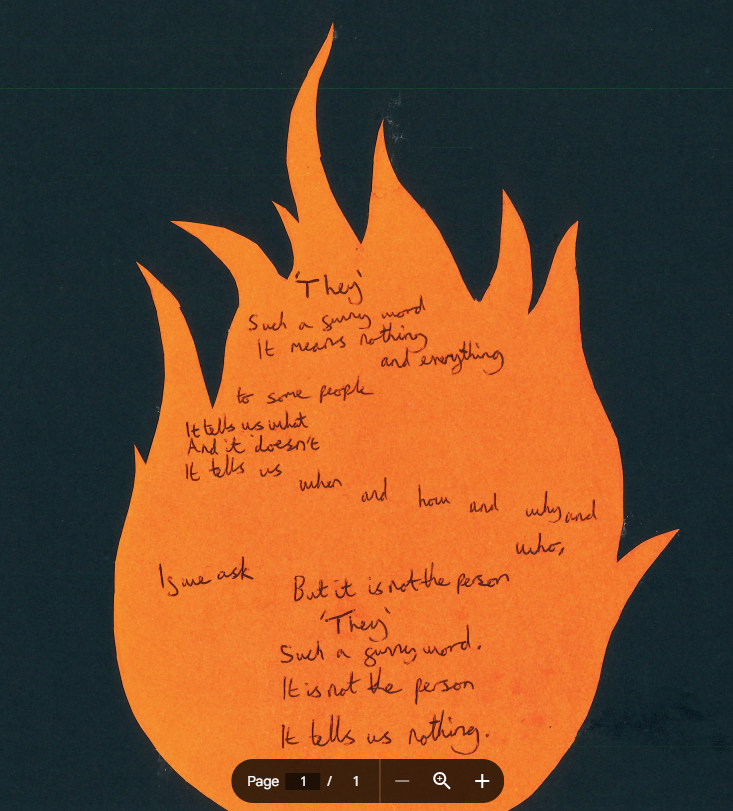 'They'
Such a funny word
It means nothing
and everything
to some people
It tells us what
And it doesn't
It tells us
when and how and why and
who,
If we ask
But it is not the person
'They'
Such a funny word.
It is not the person
It tells us nothing.
Page 1 / 1